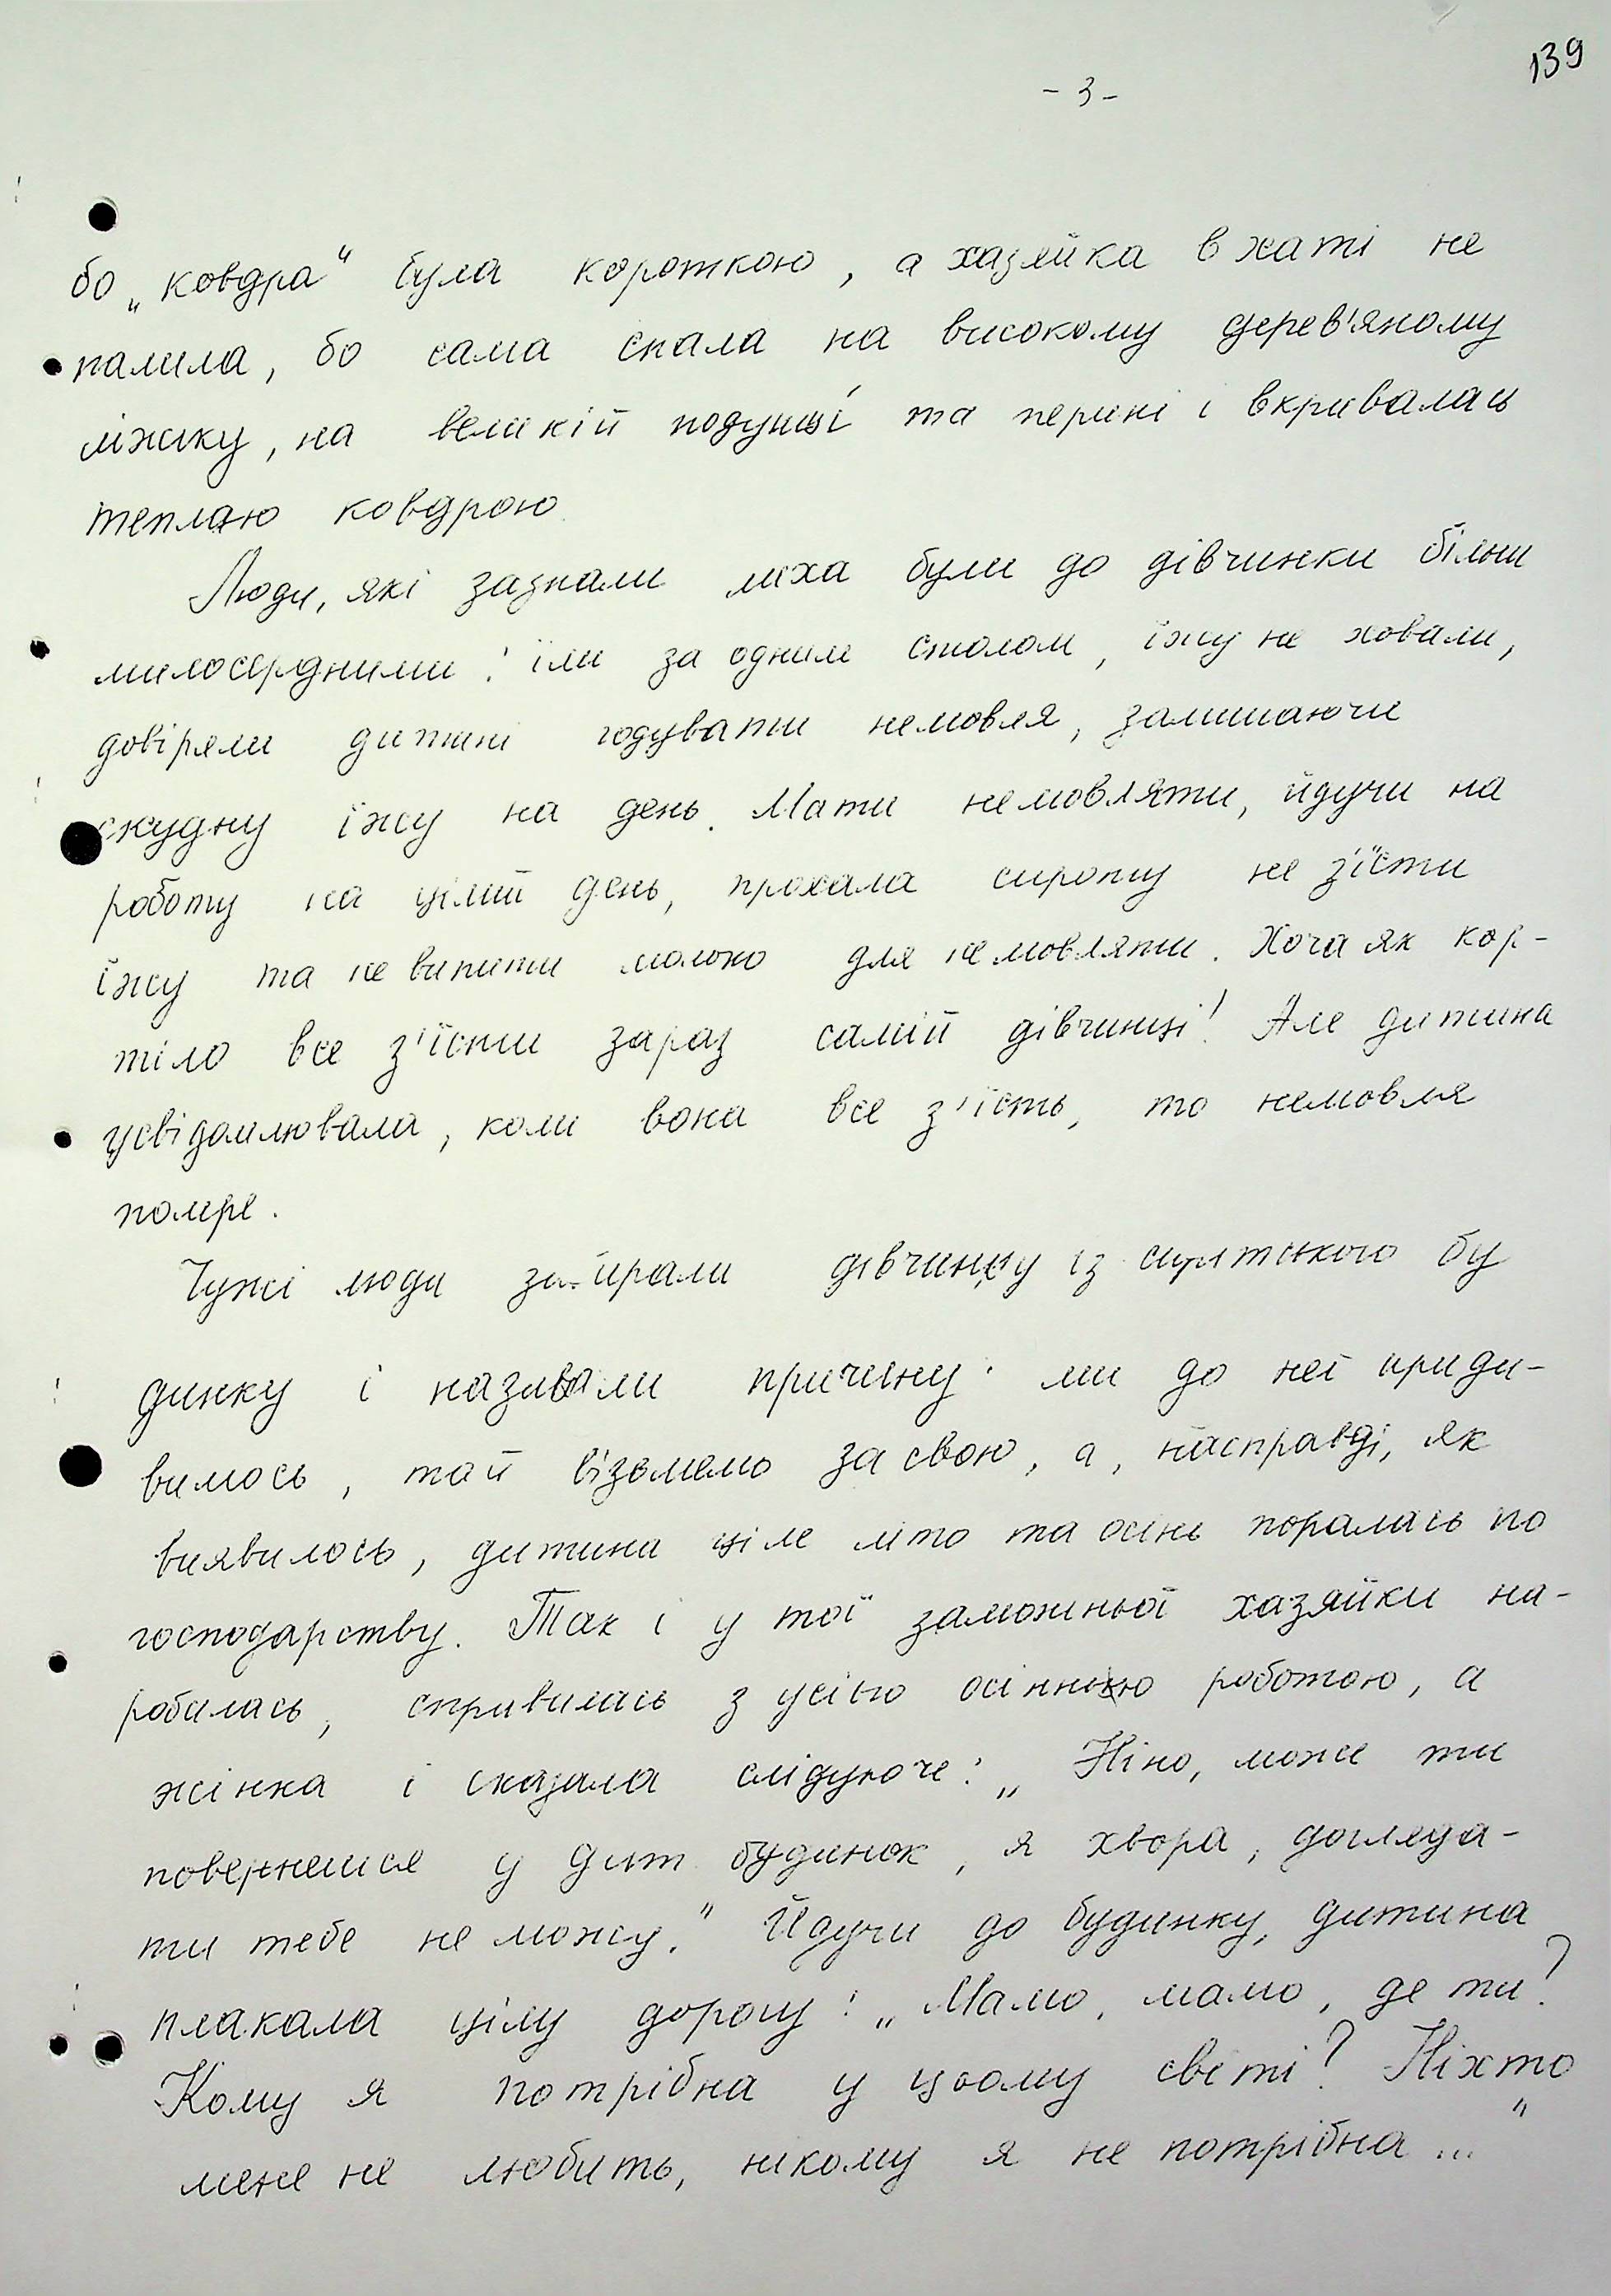 139
- 3 -
бо „ковдра“ була короткою, а хазяйка в хаті не
палила, бо сама спала на високому дерев'яному
ліжку, на великій подушці та перині і вкривалась
теплою ковдрою.
Люди, які зазнали лиха були до дівчинки більш
милосердними: їли за одним столом, їжу не ховали,
довіряли дитині годувати немовля, залишаючи
скудну їжу на день. Мати немовляти, йдучи на
роботу на цілий день, прохала сироту не з'їсти
їжу та не випити молоко для немовляти. Хоча як кор-
тіло все з'їсти зараз самій дівчинці! Але дитина
усвідомлювала, коли вона все з'їсть, то немовля
помре.
Чужі люди забирали дівчинку із сирітського бу
динку і називали причину: ми до неї приди-
вимось, та й візьмемо за свою, а, насправді, як
виявилось, дитина ціле літо та осінь поралась по
господарству. Так і у тої заможньої хазяйки на-
робилась, справилась з усією осінньою роботою, а
жінка і сказала слідуюче: „Ніно, може ти
повернешся у дит. будинок, я хвора, догляда-
ти тебе не можу.“ Йдучи до будинку, дитина
плакала цілу дорогу: „Мамо, мамо, де ти?
Кому я потрібна у цьому світі? Ніхто
мене не любить, нікому я не потрібна...“